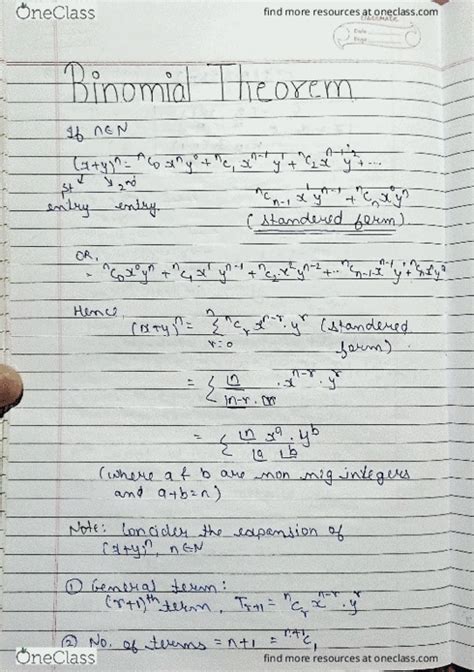 OneClass
find more resources at oneclass.com
classmate
Date
Page
Binomial Theorem
If n∈N
(x+y)ⁿ = ⁿC₀ xⁿy⁰ + ⁿC₁ xⁿ⁻¹y¹ + ⁿC₂ xⁿ⁻²y² + ...
1st 2nd
entry entry
ⁿCₙ₋₁ x¹yⁿ⁻¹ + ⁿCₙx⁰yⁿ
(standered form)
OR,
= ⁿC₀x⁰yⁿ + ⁿC₁x¹yⁿ⁻¹ + ⁿC₂x²yⁿ⁻² + ... ⁿCₙ₋₁xⁿ⁻¹y¹ + ⁿCₙxⁿy⁰
Hence, (x+y)ⁿ = Σ ⁿCᵣ xⁿ⁻ʳ . yʳ (standered
r=0
form)
= Σ |n / |n-r . |r . xⁿ⁻ʳ . yʳ
= Σ |n / |a |b xᵃ . yᵇ
(where a & b are non nig integers
and a+b=n)
Note: Concider the expansion of
(x+y)ⁿ, n∈N
① General term:
(r+1)th term, Tᵣ₊₁ = ⁿCᵣ xⁿ⁻ʳ . yʳ
② No. of terms = n+1 = ⁿ⁺¹C₁
OneClass
find more resources at oneclass.com